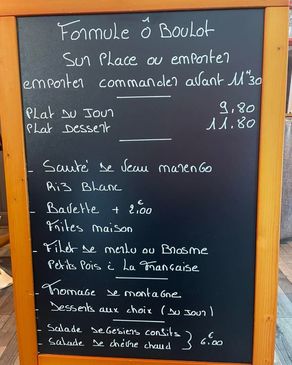 Formule Ô Boulot
Sur Place ou emporter
emporter commander avant 11H30
Plat du Jour 9,80
Plat Dessert 11.80
- Sauté de Veau marengo
Riz Blanc
- Bavette + 2,00€
Frites maison
- Filet de merlu ou Brosme
Petits Pois à La Française
- Fromage de montagne
- Desserts aux choix (du Jour)
- Salade de Gésiers confits
- Salade de chèvre chaud } 6.00€